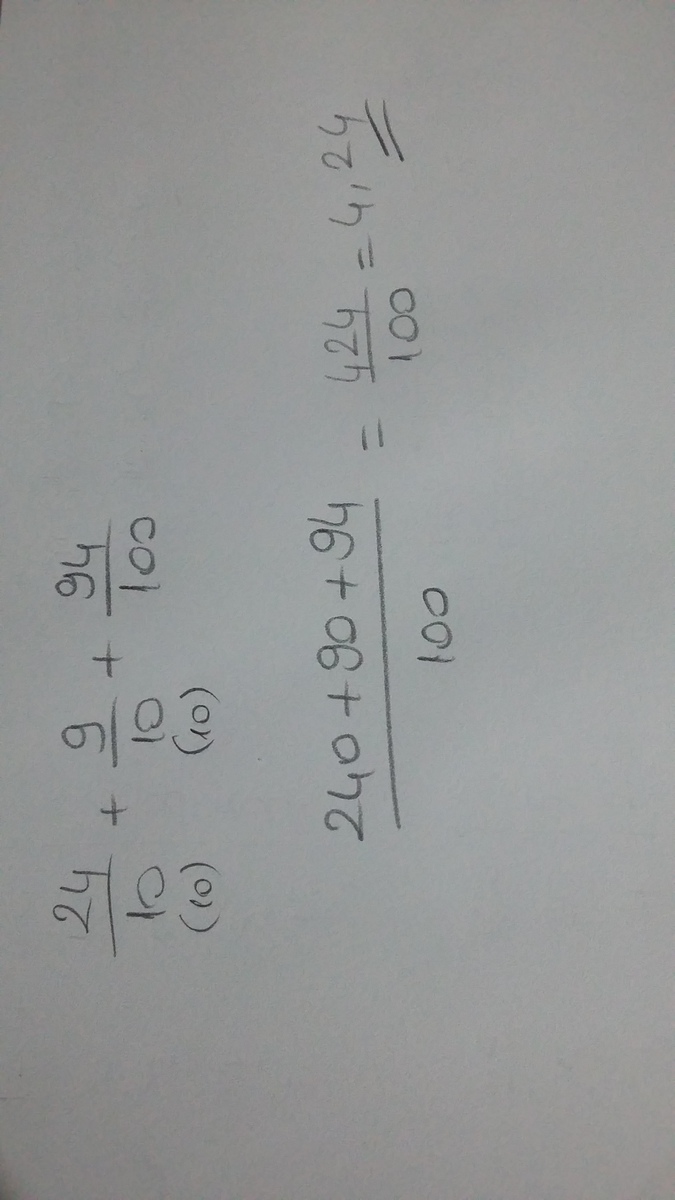 24/10 + 9/10 + 94/100
(10) (10)
240 + 90 + 94/100 = 424/100 = 4,24